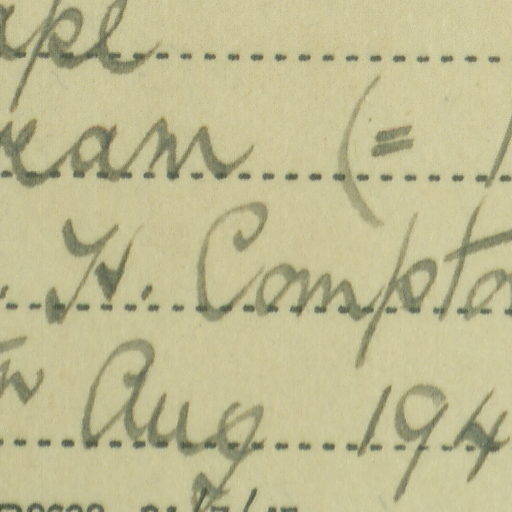 ape
ream (=
. H. Compto
th Aug 194